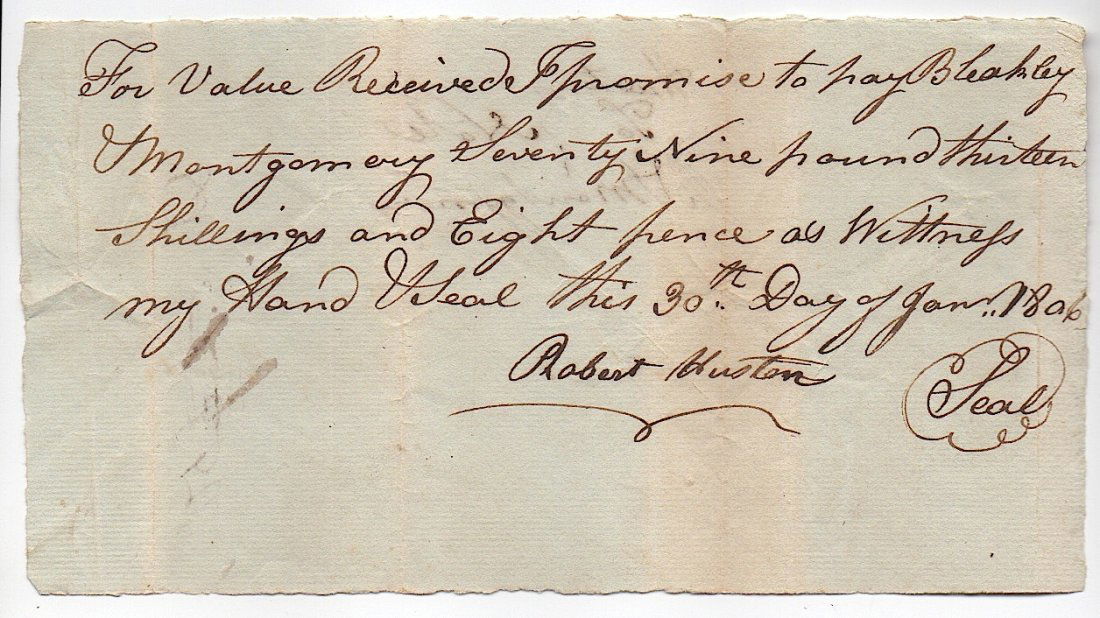 For Value Received I promise to pay Bleakley
& Montgomery Seventy Nine pound thirteen
Shillings and Eight pence as Wittness
my Hand & Seal this 30th Day of Janr. 1806
Robert Huston
Seal